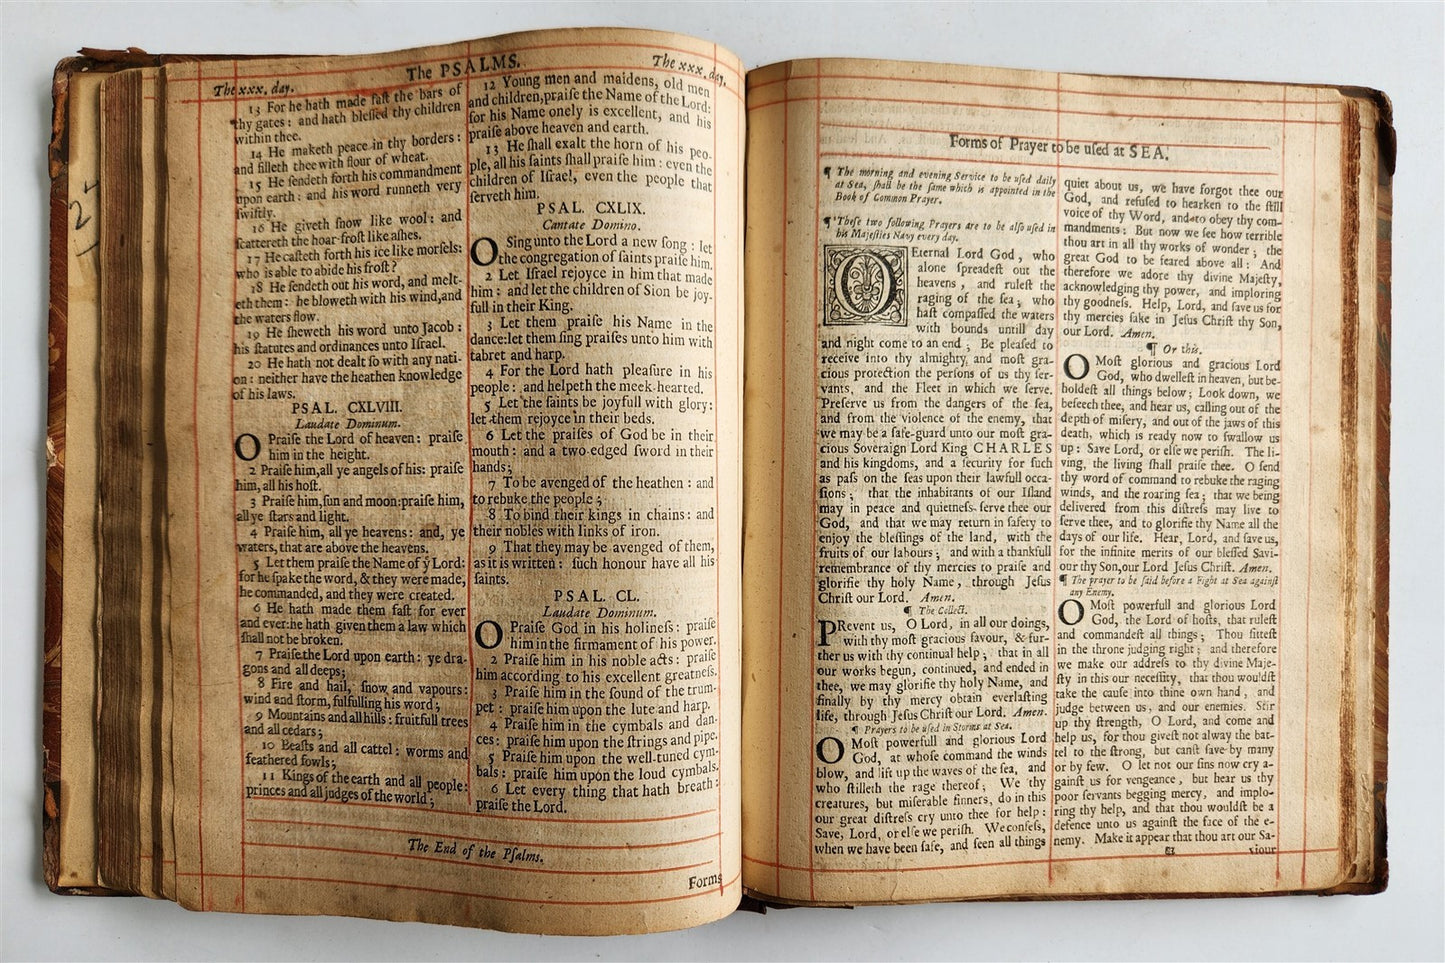 The PSALMS.
The xxx. day.
The xxx. day.
13 For he hath made faſt the bars of
thy gates: and hath bleſſed thy children
within thee.
14 He maketh peace in thy borders:
and filleth thee with flour of wheat.
15 He ſendeth forth his commandment
upon earth: and his word runneth very
ſwiftly.
16 He giveth ſnow like wool: and
ſcattereth the hoar-froſt like aſhes.
17 He caſteth forth his ice like morſels:
who is able to abide his froſt?
18 He ſendeth out his word, and melt-
eth them: he bloweth with his wind, and
the waters flow.
19 He ſheweth his word unto Jacob:
his ſtatutes and ordinances unto Iſrael.
20 He hath not dealt ſo with any nati-
on: neither have the heathen knowledge
of his laws.
PSAL. CXLVIII.
Laudate Dominum.
O Praiſe the Lord of heaven: praiſe
him in the height.
2 Praiſe him, all ye angels of his: praiſe
him, all his hoſt.
3 Praiſe him, ſun and moon: praiſe him,
all ye ſtars and light.
4 Praiſe him, all ye heavens: and, ye
waters, that are above the heavens.
5 Let them praiſe the Name of yͤ Lord:
for he ſpake the word, & they were made,
he commanded, and they were created.
6 He hath made them faſt for ever
and ever: he hath given them a law which
ſhall not be broken.
7 Praiſe the Lord upon earth: ye dra-
gons and all deeps;
8 Fire and hail, ſnow and vapours:
wind and ſtorm, fulfulling his word;
9 Mountains and all hills: fruitfull trees
and all cedars;
10 Beaſts and all cattel: worms and
feathered fowls;
11 Kings of the earth and all people:
princes and all judges of the world;
12 Young men and maidens, old men
and children, praiſe the Name of the Lord:
for his Name onely is excellent, and his
praiſe above heaven and earth.
13 He ſhall exalt the horn of his peo-
ple, all his ſaints ſhall praiſe him: even the
children of Iſrael, even the people that
ſerveth him.
PSAL. CXLIX.
Cantate Domino.
O Sing unto the Lord a new ſong: let
the congregation of ſaints praiſe him.
2 Let Iſrael rejoyce in him that made
him: and let the children of Sion be joy-
full in their King.
3 Let them praiſe his Name in the
dance: let them ſing praiſes unto him with
tabret and harp.
4 For the Lord hath pleaſure in his
people: and helpeth the meek-hearted.
5 Let the ſaints be joyfull with glory:
let them rejoyce in their beds.
6 Let the praiſes of God be in their
mouth: and a two-edged ſword in their
hands;
7 To be avenged of the heathen: and
to rebuke the people;
8 To bind their kings in chains: and
their nobles with links of iron.
9 That they may be avenged of them,
as it is written: ſuch honour have all his
ſaints.
PSAL. CL.
Laudate Dominum.
O Praiſe God in his holineſs: praiſe
him in the firmament of his power.
2 Praiſe him in his noble acts: praiſe
him according to his excellent greatneſs.
3 Praiſe him in the ſound of the trum-
pet: praiſe him upon the lute and harp.
4 Praiſe him in the cymbals and dan-
ces: praiſe him upon the ſtrings and pipe.
5 Praiſe him upon the well-tuned cym-
bals: praiſe him upon the loud cymbals.
6 Let every thing that hath breath:
praiſe the Lord.
The End of the Pſalms.
Forms
Forms of Prayer to be uſed at SEA.
¶ The morning and evening Service to be uſed daily
at Sea, ſhall be the ſame which is appointed in the
Book of Common Prayer.
¶ Theſe two following Prayers are to be alſo uſed in
his Majeſties Navy every day.
O Eternal Lord God, who
alone ſpreadeſt out the
heavens, and ruleſt the
raging of the ſea, who
haſt compaſſed the waters
with bounds untill day
and night come to an end; Be pleaſed to
receive into thy almighty, and moſt gra-
cious protection the perſons of us thy ſer-
vants, and the Fleet in which we ſerve.
Preſerve us from the dangers of the ſea,
and from the violence of the enemy, that
we may be a ſafe-guard unto our moſt gra-
cious Soveraign Lord King CHARLES
and his kingdoms, and a ſecurity for ſuch
as paſs on the ſeas upon their lawfull occa-
ſions; that the inhabitants of our Iſland
may in peace and quietneſs ſerve thee our
God, and that we may return in ſafety to
enjoy the bleſſings of the land, with the
fruits of our labours; and with a thankfull
remembrance of thy mercies to praiſe and
glorifie thy holy Name, through Jeſus
Chriſt our Lord. Amen.
¶ The Collect.
PRevent us, O Lord, in all our doings,
with thy moſt gracious favour, & fur-
ther us with thy continual help; that in all
our works begun, continued, and ended in
thee, we may glorifie thy holy Name, and
finally by thy mercy obtain everlaſting
life, through Jeſus Chriſt our Lord. Amen.
¶ Prayers to be uſed in Storms at Sea.
O Moſt powerfull and glorious Lord
God, at whoſe command the winds
blow, and lift up the waves of the ſea, and
who ſtilleth the rage thereof; We thy
creatures, but miſerable ſinners, do in this
our great diſtreſs cry unto thee for help:
Save, Lord, or elſe we periſh. We confeſs,
when we have been ſafe, and ſeen all things
quiet about us, we have forgot thee our
God, and refuſed to hearken to the ſtill
voice of thy Word, and to obey thy com-
mandments: But now we ſee how terrible
thou art in all thy works of wonder; the
great God to be feared above all: And
therefore we adore thy divine Majeſty,
acknowledging thy power, and imploring
thy goodneſs. Help, Lord, and ſave us for
thy mercies ſake in Jeſus Chriſt thy Son,
our Lord. Amen.
¶ Or this.
O Moſt glorious and gracious Lord
God, who dwelleſt in heaven, but be-
holdeſt all things below; Look down, we
beſeech thee, and hear us, calling out of the
depth of miſery, and out of the jaws of this
death, which is ready now to ſwallow us
up: Save Lord, or elſe we periſh. The li-
ving, the living ſhall praiſe thee. O ſend
thy word of command to rebuke the raging
winds, and the roaring ſea; that we being
delivered from this diſtreſs may live to
ſerve thee, and to glorifie thy Name all the
days of our life. Hear, Lord, and ſave us,
for the infinite merits of our bleſſed Savi-
our thy Son, our Lord Jeſus Chriſt. Amen.
¶ The prayer to be ſaid before a Fight at Sea againſt
any Enemy.
O Moſt powerfull and glorious Lord
God, the Lord of hoſts, that ruleſt
and commandeſt all things; Thou ſitteſt
in the throne judging right; and therefore
we make our addreſs to thy divine Maje-
ſty in this our neceſſity, that thou wouldſt
take the cauſe into thine own hand, and
judge between us, and our enemies. Stir
up thy ſtrength, O Lord, and come and
help us, for thou giveſt not alway the bat-
tel to the ſtrong, but canſt ſave by many
or by few. O let not our ſins now cry a-
gainſt us for vengeance, but hear us thy
poor ſervants begging mercy, and implo-
ring thy help, and that thou wouldſt be a
defence unto us againſt the face of the e-
nemy. Make it appear that thou art our Sa-
viour